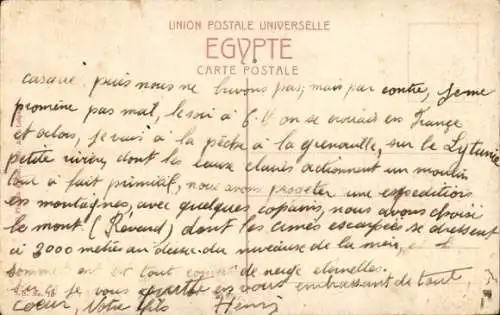 UNION POSTALE UNIVERSELLE
EGYPTE
CARTE POSTALE
casque, puis nous ne buvons pas; mais par contre, je me
promène pas mal, le soir à 6.H on se croirais en France
et alors, je vais à la pêche à la grenouille, sur le Lyturie
petite rivière, dont les eaux claires actionnent un moulin
tout à fait primitif, nous avons projeter une expédition
en montagnes, avec quelques copains, nous avons choisi
le mont. (Revard) dont les cimes escarpées se dressent
à 3000 mètres au dessus du niveau de la mer, et
sommet est tout de neige eternelles.
Sur ce je vous quitte en vous embrassant de tout
coeur, Votre fils Henri